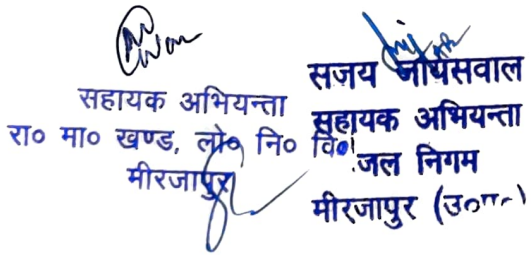 सहायक अभियन्ता
रा० मा० खण्ड, लो० नि० वि०
मीरजापुर
सजय जायसवाल
सहायक अभियन्ता
जल निगम
मीरजापुर (उ०प्र०)